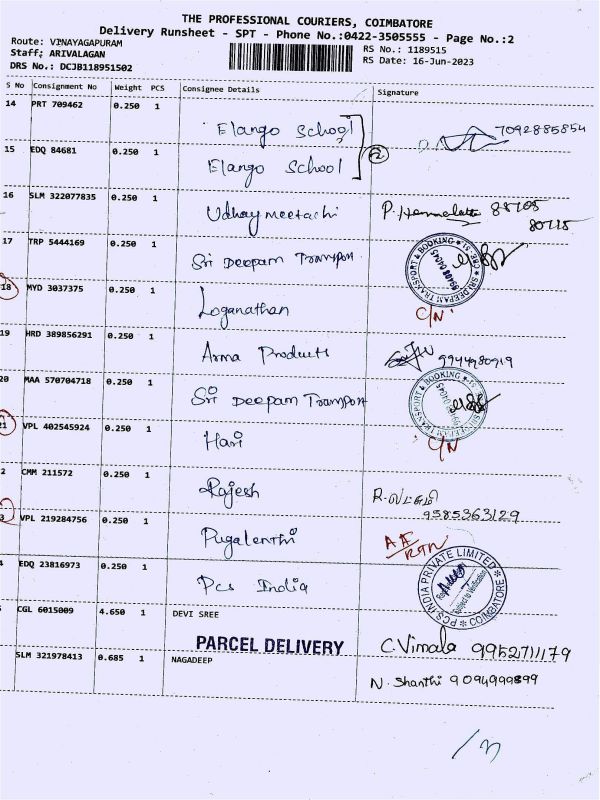 THE PROFESSIONAL COURIERS, COIMBATORE
Delivery Runsheet - SPT - Phone No.:0422-3505555 - Page No.:2
Route: VINAYAGAPURAM
Staff: ARIVALAGAN
DRS No.: DCJB118951502
RS No.: 1189515
RS Date: 16-Jun-2023
S No Consignment No Weight PCS Consignee Details Signature
14 PRT 709462 0.250 1
Elango School 7092885854
15 EDQ 84681 0.250 1
Elango School 2
16 SLM 322077835 0.250 1
Udhaymeetachi P. Hemalatha 88705
80715
17 TRP 5444169 0.250 1
Sri Deepam Transport
SRI DEEPAM TRANSPORT & BOOKING
18 MYD 3037375 0.250 1
Loganathan C/N
19 HRD 389856291 0.250 1
Arma Products 9944980919
20 MAA 570704718 0.250 1
Sri Deepam Transport
SRI DEEPAM TRANSPORT & BOOKING
21 VPL 402545924 0.250 1
Hari C/N
2 CMM 211572 0.250 1
Rajesh R. லட்சுமி
9585363129
3 VPL 219284756 0.250 1
Pugalenthi
RTN
4 EDQ 23816973 0.250 1
Pcs India
PCS INDIA PRIVATE LIMITED
COIMBATORE
Subject to Verification
CGL 6015009 4.650 1 DEVI SREE
PARCEL DELIVERY C. Vimala 9952711179
SLM 321978413 0.685 1 NAGADEEP
N. Shanthi 9094999899